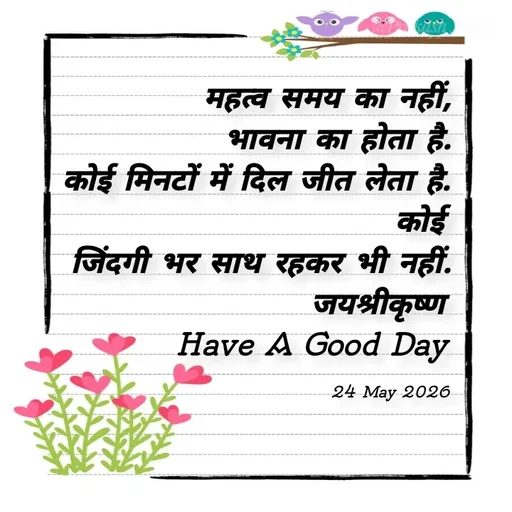 महत्व समय का नहीं,
भावना का होता है.
कोई मिनटों में दिल जीत लेता है.
कोई
जिंदगी भर साथ रहकर भी नहीं.
जयश्रीकृष्ण
Have A Good Day
24 May 2026